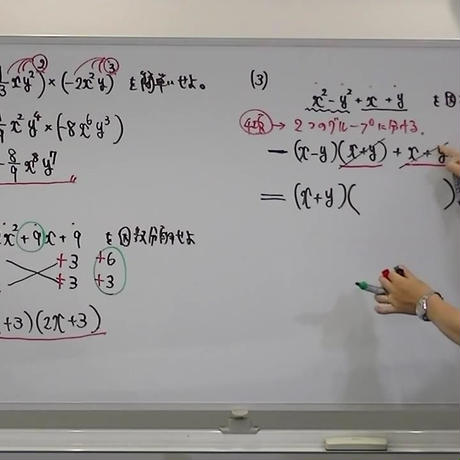 /3 xy²) × (-2x²y)³ を簡単にせよ。
/9 x²y⁴ × (-8x⁶y³)
- 8/9 x⁸y⁷
x² + 9x + 9 を因数分解せよ
+3 +6
+3 +3
+3)(2x+3)
(3)
x² - y² + x + y を因
4コ → 2つのグループに分ける.
= (x-y)(x+y) + x+y
= (x+y)(       )